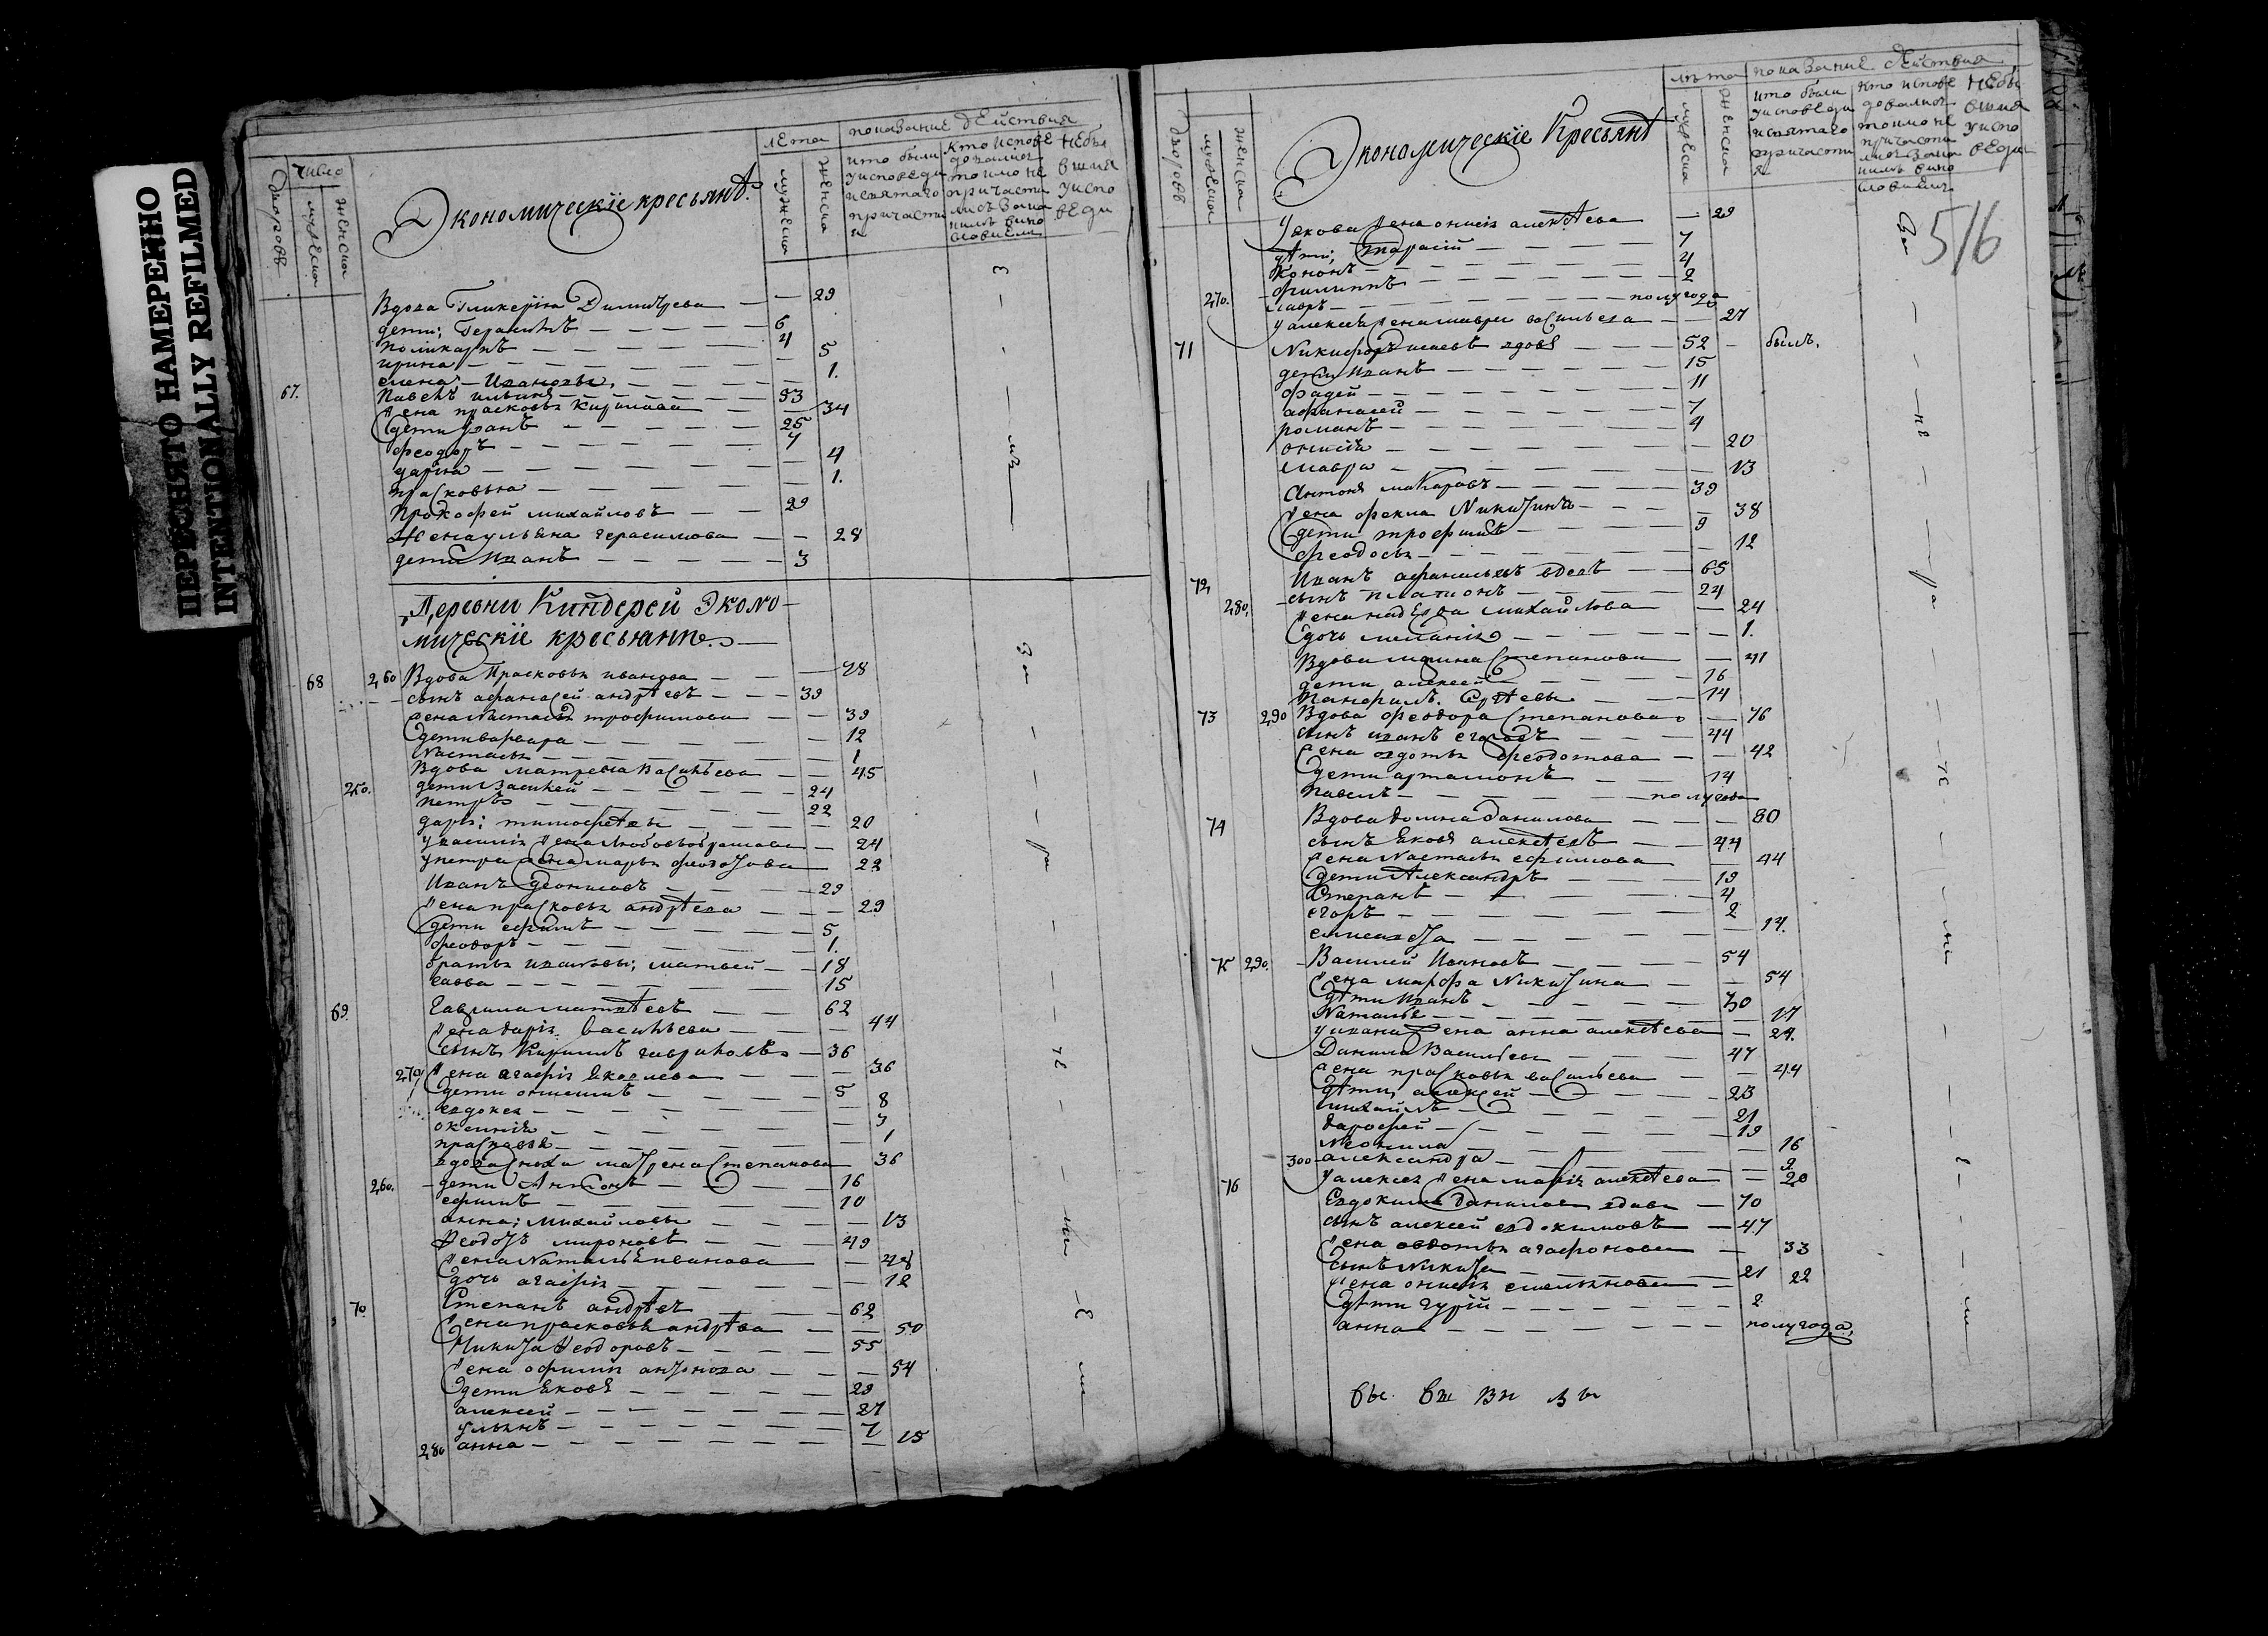 ПЕРЕСНЯТО НАМЕРЕННО
INTENTIONALLY REFILMED
Число
дворовъ
мужеска
женска
Экономическіе кресьянѣ.
лета
мужеска
женска
показание действия
что были у исповеди и святаго причасти
кто исповедовались токмо не причастились
небывшия у исповеди
Вдова Гликерія Димитрева — — 29
дети; Герасимъ — 6
Поликарпъ — 4
ирина — 5
елена, — Ивановы, — 1.
67. Павелъ ильинъ — 33
жена прасковья Кирилова — 34
дети Иванъ — 25
феодоръ — 7
дарья — 4
прасковья — 1.
Прокофей михайловъ — 29
Жена ульяна герасимова — 28
дети Иванъ — 3
Деревни Киндерей Экономическіе кресьянѣ.
68 260 Вдова Прасковья иванова — 78
сынъ афанасей андрѣевъ — 39
жена Настасья трофимова — 39
дети варвара — 12
Настасья — 1
Вдова матрена Василѣева — 45
250. дети Василей — 24
петръ — 22
дарья; тимофеевы — 20
у василія жена Любовь — 24
у петра жена марья — 22
Иванъ — 29
жена прасковья андрѣева — 29
дети ефимъ — 5
феодоръ — 1.
братья ивановы; матвей — 18
савва — 15
69. Гаврила матвѣевъ — 62
жена дарія Василѣева — 44
сынъ Кирилъ гавриловъ — 36
270 жена агафія Яковлева — 36
дети — 5
евдокея — 8
оксинія — 3
прасковья — 1
вдова сноха матрена Степанова 36
260. дети Антонъ — 16
ефимъ — 10
анна; михайловы — 13
Феодотъ мироновъ — 49
жена Наталья иванова — 48
дочь агафія — 12
70. Степанъ андрѣевъ — 62
жена прасковья андрѣева — 50
Никита Феодоровъ — 55
жена офимия антонова — 54
дети Яковъ — 29
алексей — 27
ульянъ — 7
280 анна — 15
516
дворовъ
мужеска
женска
Экономическіе Кресьянѣ
лѣта
мужеска
женска
показание действия
что были у исповеди и святаго причасти
кто исповедовались токмо не причастились
небывшия у исповеди
У якова жена алексѣева — 29
дѣти; тарасій — 7
Кононъ — 4
филиппъ — 2
270. лавръ — полугода
у алексея жена мавра васильева — 27
71 Никифоръ исаевъ вдовъ — 52 — былъ.
дети Иванъ — 15
фадей — 11
афанасей — 7
романъ — 4
— 20
мавра — 13
Антонъ макаровъ — 39
жена фекла Никитина — 38
дети трофимъ — 9
феодосья — 12
72, Иванъ афанасьевъ вдовъ — 65
280, сынъ платонъ — 24
жена надежда михайлова — 24
дочь меланія — 1.
Вдова марина Степанова — 41
дети алексей — 16
Панфилъ. Сергѣевы — 14
73 290 Вдова феодора Степанова — 76
сынъ иванъ егоровъ — 44
жена авдотья феодотова — 42
дети артамонъ — 14
Павелъ — полугода
74 Вдова домна данилова — 80
сынъ Яковъ алексѣевъ — 44
жена Настасья ефимова — 44
дети Александръ — 19
Степанъ — 4
егоръ — 2
елисавета — 14.
75 290. Василей Ивановъ — 54
жена марфа Никитина — 54
дѣти Иванъ — 30
Наталья — 17
у ивана жена анна алексѣева — 24.
Данила Васильевъ — 47
жена прасковья васильева — 44
дѣти, алексей — 23
михайлъ — 21
дарофей — 19
Неонила — 16
300 александра — 9
у алексея жена марія алексѣева — 20
76 Евдокимъ даниловъ вдовъ — 70
сынъ алексей евдокимовъ — 47
жена авдотья агафонова — 33
сынъ Никита — 21
жена емельянова — 22
дѣти гурій — 2
анна — полугода,